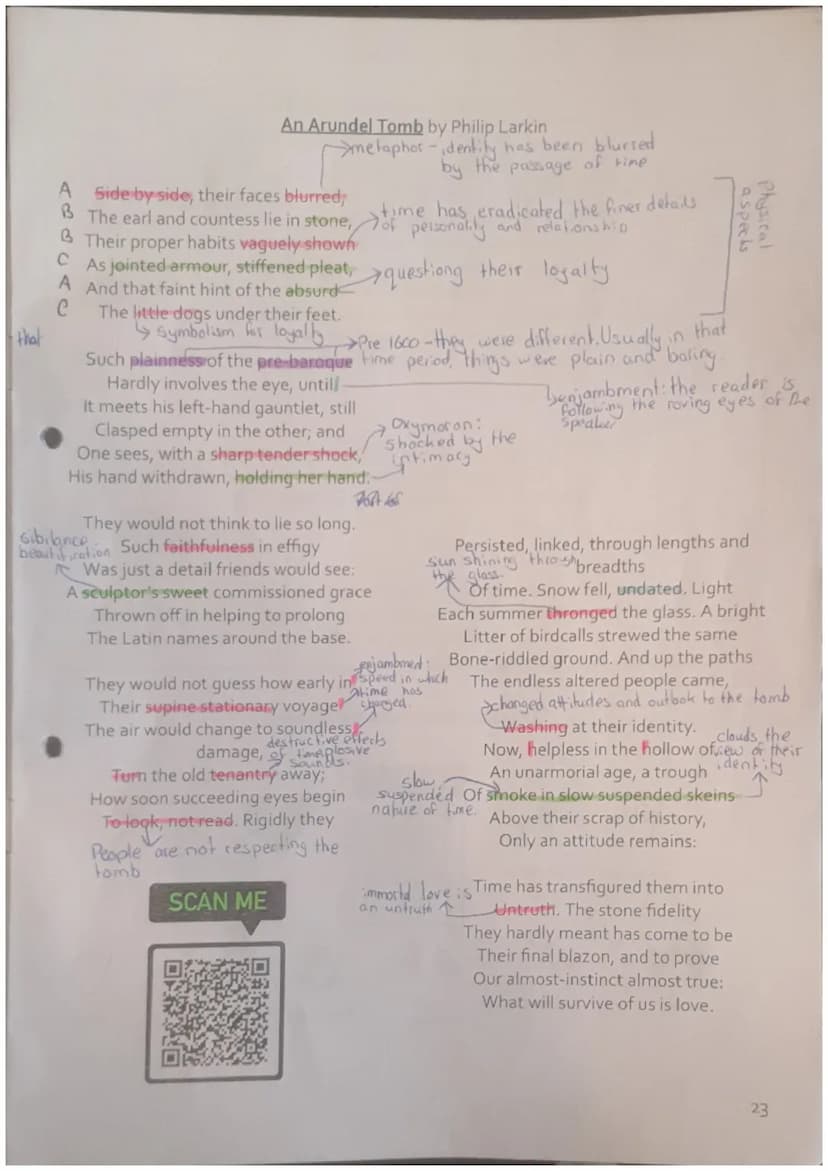 An Arundel Tomb by Philip Larkin
metaphor - identity has been blurred
by the passage of time
A Side by side, their faces blurred,
B The earl and countess lie in stone,
time has eradicated the finer details
of personality and relationship
B Their proper habits vaguely shown
C As jointed armour, stiffened pleat,
questiong their loyalty
A And that faint hint of the absurd
C The little dogs under their feet.
Physical
aspects
Symbolism for loyalty
that
Pre 1600 - they were different. Usually in that
time period, things were plain and boring.
Such plainness of the pre-baroque
Hardly involves the eye, until
enjambment: the reader is
following the roving eyes of the
speaker
It meets his left-hand gauntlet, still
Clasped empty in the other; and
Oxymoron:
shocked by the
intimacy
One sees, with a sharp tender shock,
His hand withdrawn, holding her hand.
They would not think to lie so long.
sibilance
beautification
Such faithfulness in effigy
Was just a detail friends would see:
A sculptor's sweet commissioned grace
Thrown off in helping to prolong
The Latin names around the base.
They would not guess how early in
enjambment:
speed in which
time has
changed
Their supine stationary voyage
The air would change to soundless
damage,
destructive effects
of time plosive
sounds.
Turn the old tenantry away;
How soon succeeding eyes begin
To look, not read. Rigidly they
People are not respecting the
tomb
SCAN ME
Persisted, linked, through lengths and
breadths
sun shining through
the glass
Of time. Snow fell, undated. Light
Each summer thronged the glass. A bright
Litter of birdcalls strewed the same
Bone-riddled ground. And up the paths
The endless altered people came,
changed attitudes and outlook to the tomb
Washing at their identity.
Now, helpless in the hollow of
clouds the
view of their
identity
An unarmorial age, a trough
slow
suspended
nature of time.
Of smoke in slow suspended skeins
Above their scrap of history,
Only an attitude remains:
immortal love is
an untruth
Time has transfigured them into
Untruth. The stone fidelity
They hardly meant has come to be
Their final blazon, and to prove
Our almost-instinct almost true:
What will survive of us is love.
23